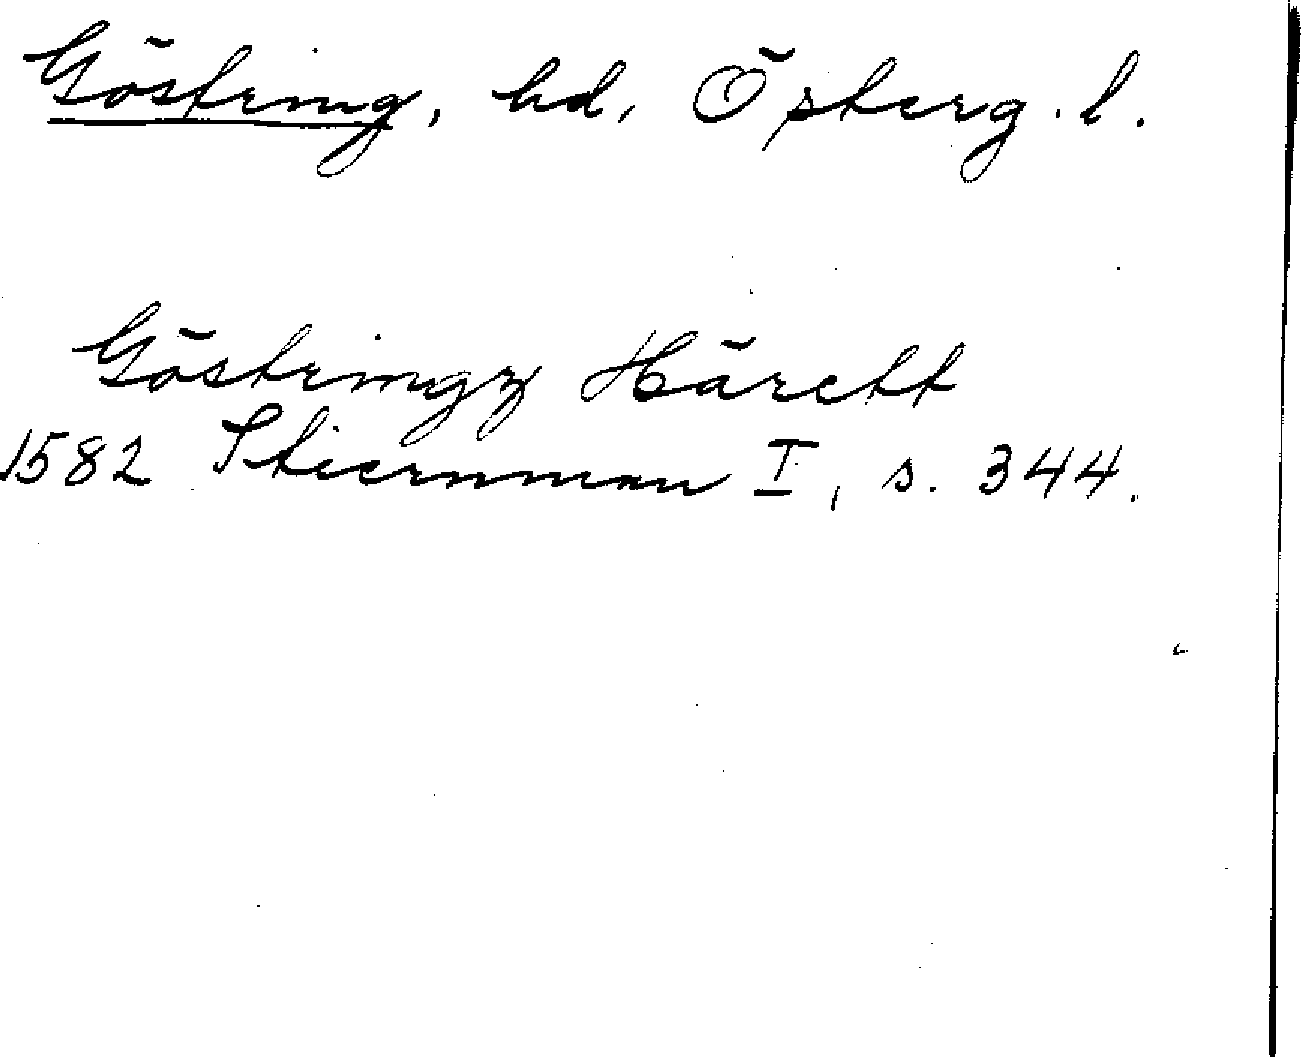 Göstring, hd, Österg. l.
Göstringz Härett
1582 Stiernman I, s. 344.